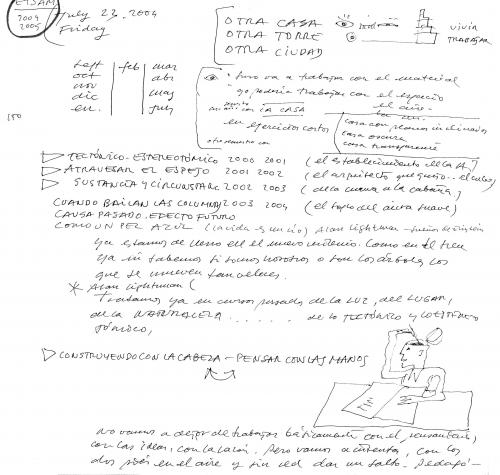 ETSAM
2004
2005
July 23. 2004
Friday
OTRA CASA
OTRA TORRE
OTRA CIUDAD
VIVIR
TRABAJAR
sept feb mar
oct abr
nov
dic may
en. jun
150
va a trabajar con el material
yo podría trabajar con el espacio
el aire
con LA CASA
en ejercicios cortos
casa con planos inclinados
casa oscura
casa transparente
TECTÓNICO-ESTEREOTÓMICO 2000 2001 (el establecimiento de la A)
ATRAVESAR EL ESPEJO 2001 2002 (el arquitecto que quiso
SUSTANCIA Y CIRCUNSTANC 2002 2003 (de la cueva a la cabaña)
CUANDO BAILAN LAS COLUMNAS 2003 2004 (el soplo del aura suave)
CAUSA PASADO. EFECTO FUTURO
COMO UN PEZ AZUL Alan Lightman
Ya estamos de lleno en el nuevo milenio. Como en el tren
ya no sabemos si somos nosotros o son los árboles los
que se mueven tan veloces.
* Alan Lightman (
Tratamos ya en cursos pasados de la LUZ, del LUGAR,
de la NATURALEZA . . . . . . de lo TECTÓNICO y lo ESTEREO
TÓMICO,
CONSTRUYENDO CON LA CABEZA - PENSAR CON LAS MANOS
No vamos a dejar de trabajar básicamente con el pensamiento,
con las ideas: con la razón. Pero vamos a intentar, con los
dos pies en el aire y sin red dar un salto. Pedagó-